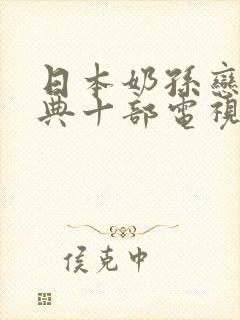 日本奶孫戀
典十部電視
侯克中